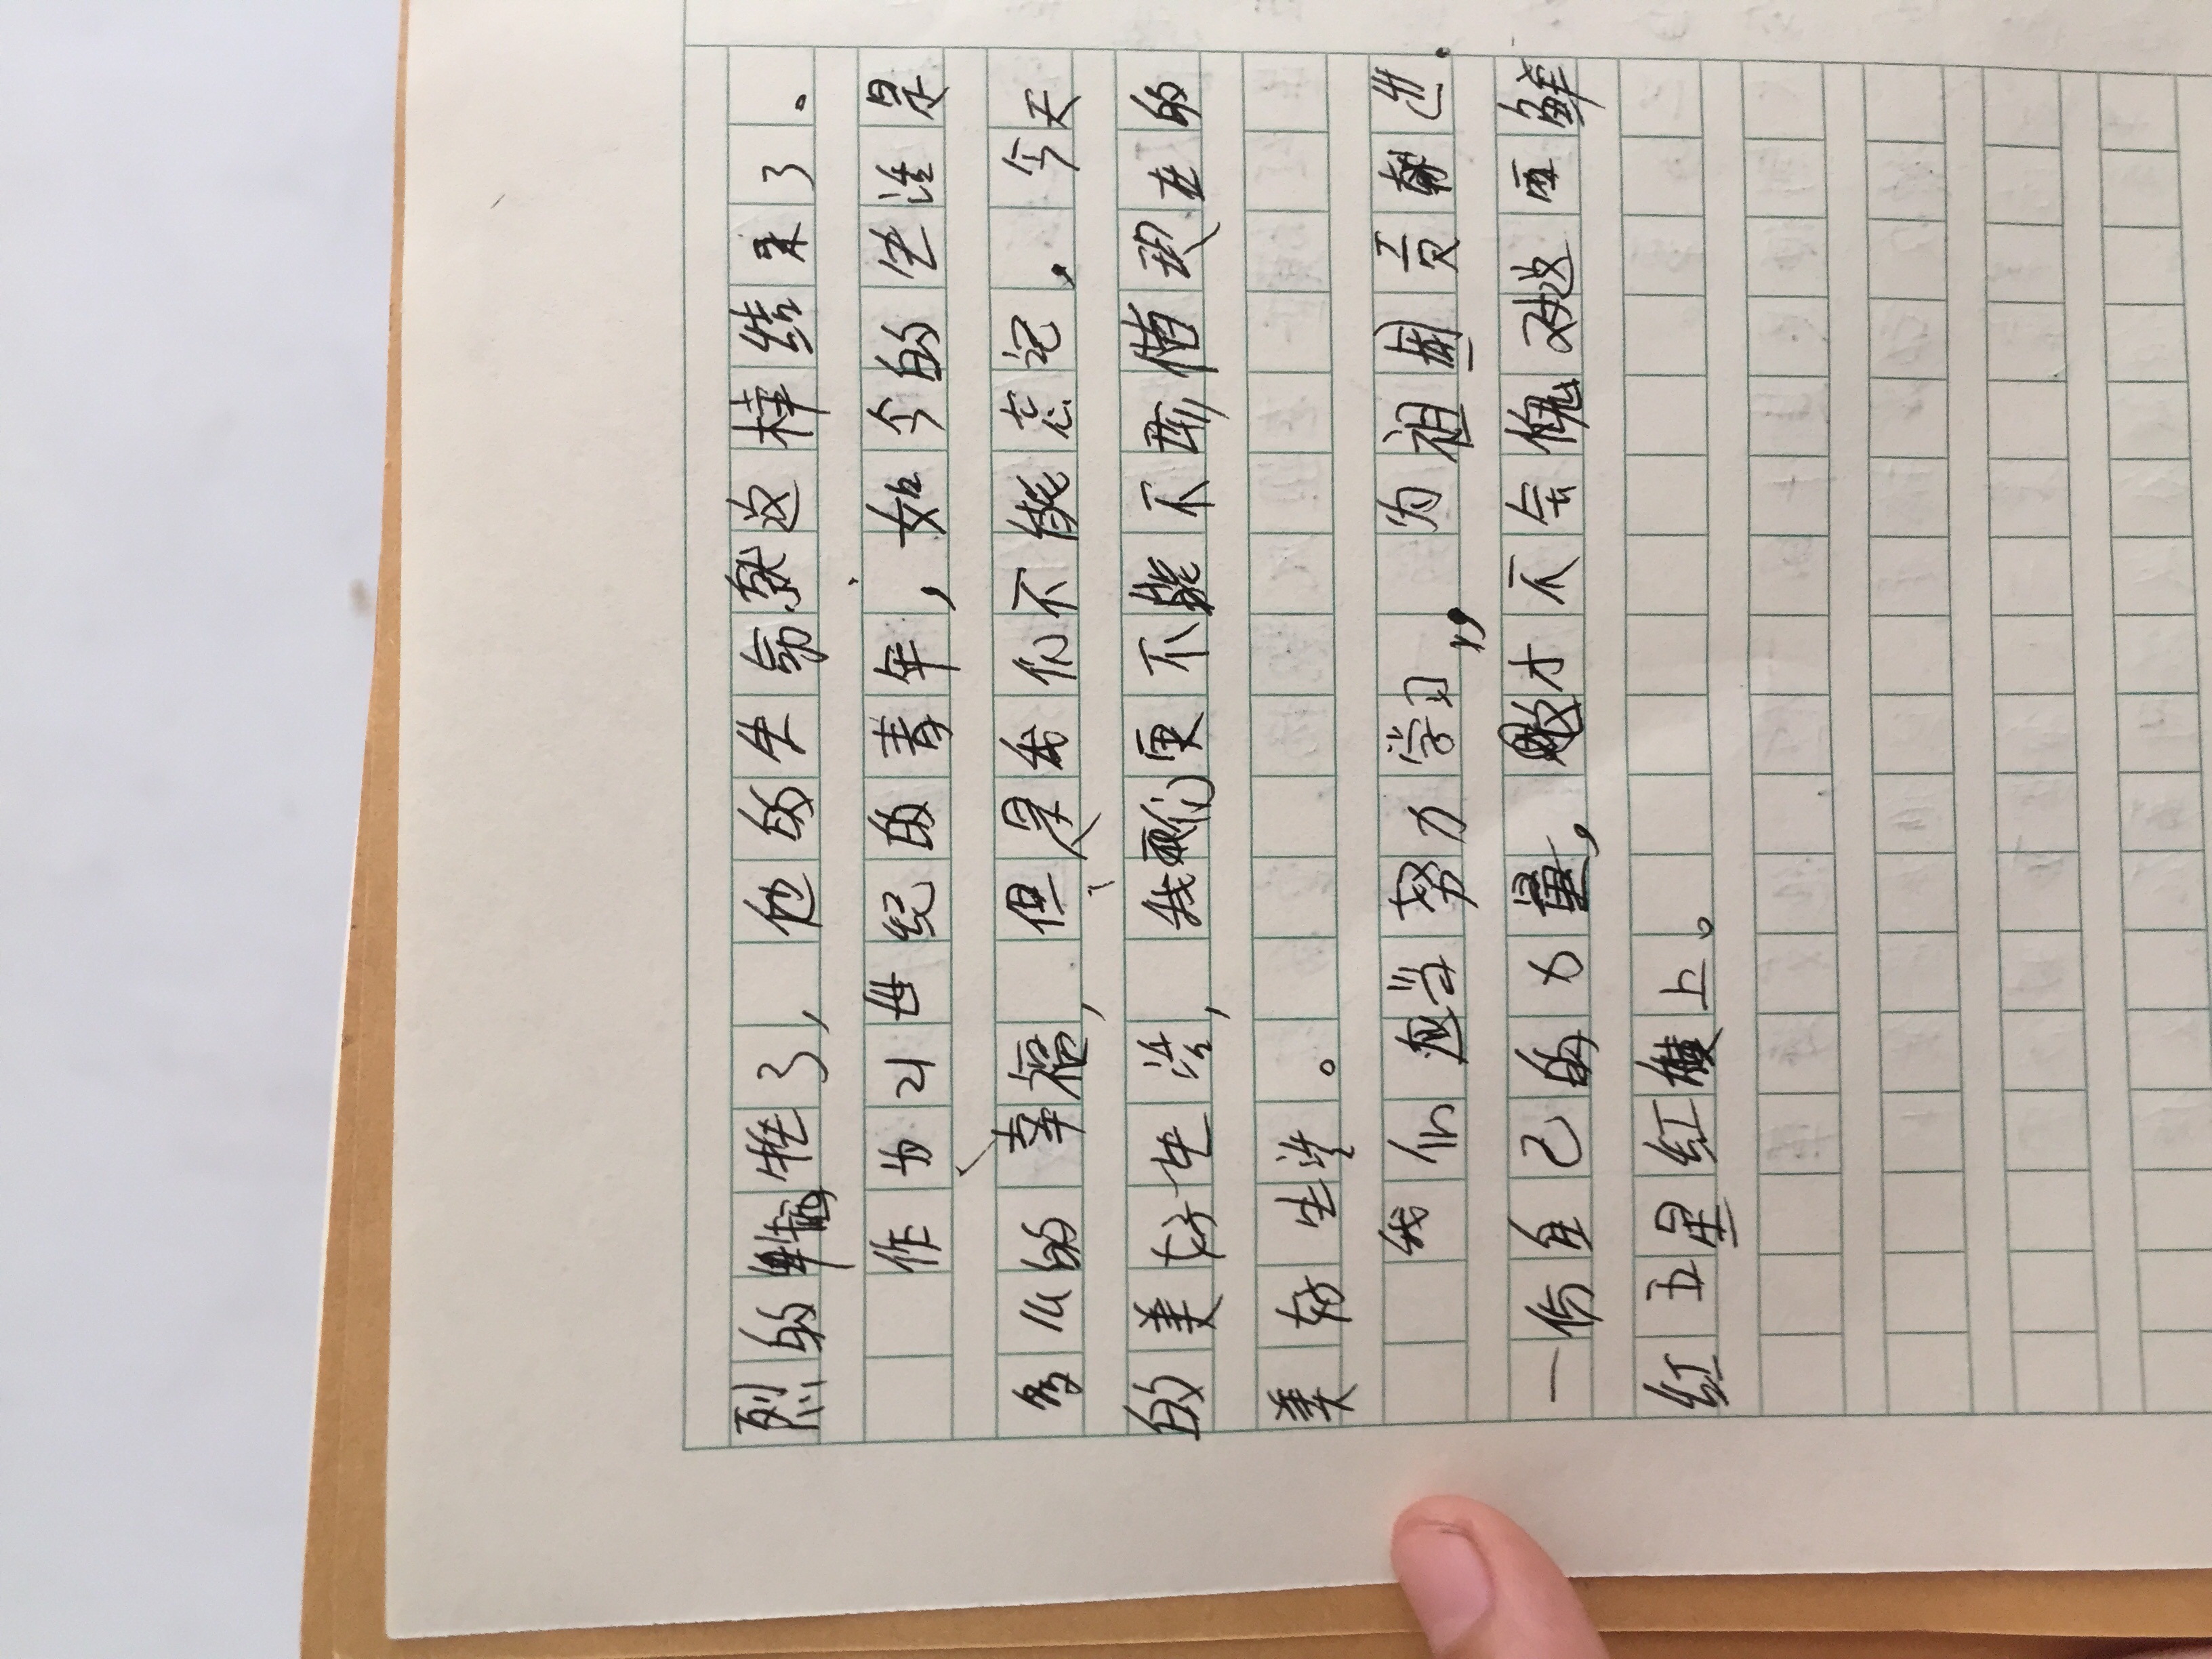 烈的牺牲了，他的生命就这样结束了。
作为21世纪的青年，如今的生活是
多么的幸福，但是我们不能忘记，今天
的美好生活，我们更不能不珍惜现在的
美好生活。
我们应当努力学习，为祖国贡献出
一份自己的力量，才不会愧对这面鲜
红五星红旗上。